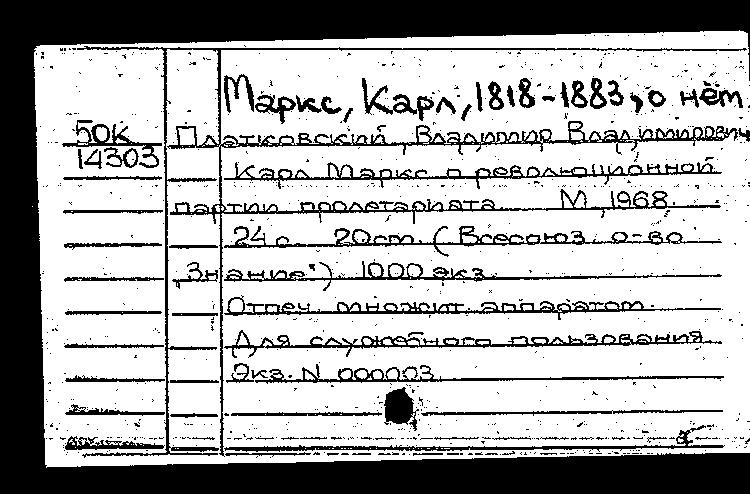 Маркс, Карл, 1818-1883, о нём
50К
14303
Платковский, Владимир Владимирович
Карл Маркс о революционной
партии пролетариата М., 1968.
24 с. 20 cm. (Всесоюз. о-во
„Знание") 1000 экз.
Отпеч. множит. аппаратом.
Для служебного пользования
Экз. N 000003